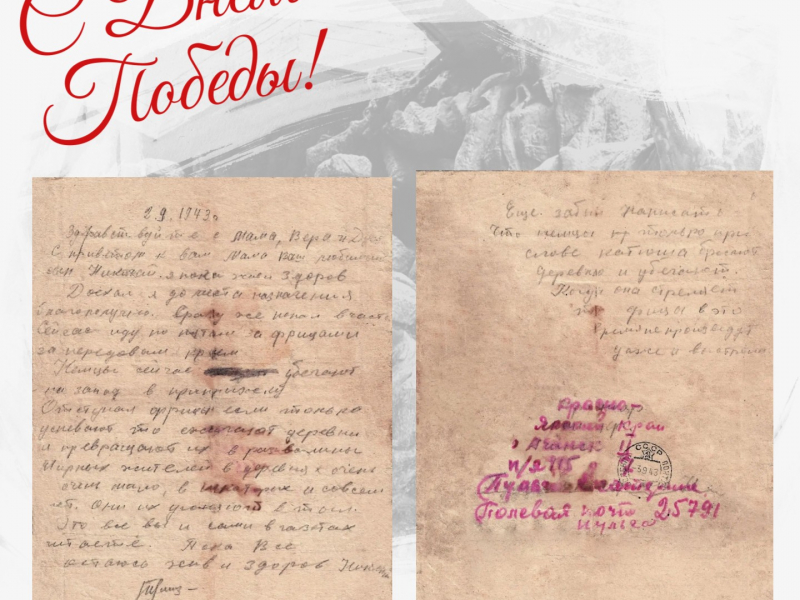 С Днём
Победы!
2 9. 1943г
Здравствуйте Мама, Вера и
С приветом к вам Мама Ваш любимый
сын Николай. я пока жив здоров
Доехал я до места назначения
благополучно. сразу же попал в часть
Сейчас иду по пятам за фрицами
за передовым краем
Немцы сейчас убегают
на запад в
Отступая фрицы если только
успевают то сжигают деревни
и превращают их в развалины
Мирных жителей в деревнях очень
очень мало, в некоторых и совсем
нет. они их угоняют в тыл.
Это все вы и сами в газетах
читаете. Пока Все
остаюсь жив и здоров
Еще забыл написать
Что немцы только при
слове катюша бросают
деревню и убегают.
Когда она стреляет
фрицы в это
время не произведут
даже и выстрела
Красно-
Ярский край
г Ачинск
п/я 115
Полевая почта 25791
СССР
5 9 43